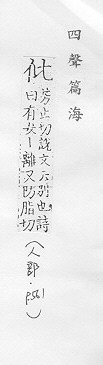 四聲篇海
仳
芳止切說文云別也詩
曰有女丨離又防脂切
(人部·p561)